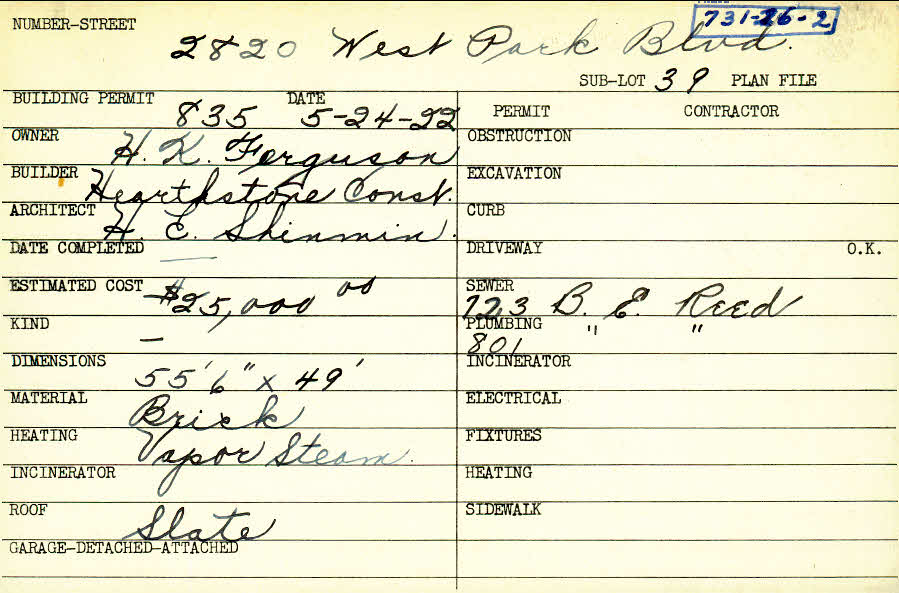 NUMBER-STREET
731-26-2
2820 West Park Blvd.
SUB-LOT 39 PLAN FILE
BUILDING PERMIT 835 DATE 5-24-22
OWNER H. K. Ferguson
BUILDER Hearthstone Const.
ARCHITECT H. E. Shinmin.
DATE COMPLETED —
ESTIMATED COST $25,000 00
KIND —
DIMENSIONS 55' 6" x 49'
MATERIAL Brick
HEATING Vapor Steam.
INCINERATOR
ROOF Slate
GARAGE-DETACHED-ATTACHED
PERMIT CONTRACTOR
OBSTRUCTION
EXCAVATION
CURB
DRIVEWAY O.K.
SEWER 723 B. E. Reed
PLUMBING 801 " "
INCINERATOR
ELECTRICAL
FIXTURES
HEATING
SIDEWALK